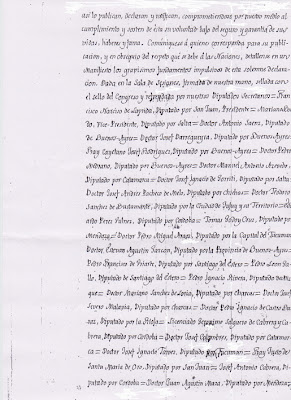 asi lo publican, declaran y ratifican, comprometiendose por nuestro medio al
cumplimiento y sosten de esta su voluntad bajo del seguro y garantia de sus
vidas, haberes y fama. Comuniquese à quienes corresponda para su publica-
cion, y en obsequio del respeto que se debe á las Naciones, detallense en un
Manifiesto los gravisimos fundamentos impulsivos de esta solemne declara-
cion. Dada en la Sala de Sesiones, firmada de nuestra mano, sellada con
el sello del Congreso y refrendada por nuestros Diputados Secretarios = Fran-
cisco Narciso de Laprida, Diputado por San Juan, Presidente = Mariano Boe-
do, Vice-Presidente, Diputado por Salta = Doctor Antonio Saenz, Diputado
de Buenos-Ayres = Doctor Josef Darregueyra, Diputado por Buenos Ayres =
Fray Cayetano Josef Rodriguez, Diputado por Buenos-Ayres = Doctor Pedro
Medrano, Diputado por Buenos-Ayres = Doctor Manuel Antonio Acevedo,
Diputado por Catamarca = Doctor Josef Ignacio de Gorriti, Diputado por Salta
Doctor Josef Andres Pacheco de Melo, Diputado por Chichas = Doctor Teodoro
Sanchez de Bustamante, Diputado por la Ciudad de Jujuy y su Territorio = Edu-
ardo Perez Bulnes, Diputado por Cordoba = Tomas Godoy Cruz, Diputado por
Mendoza = Doctor Pedro Miguel Araoz, Diputado por la Capital del Tucuman
Doctor Estevan Agustin Gazcon, Diputado por la Provincia de Buenos-Ayres =
Pedro Francisco de Uriarte, Diputado por Santiago del Estero = Pedro Leon Ga-
llo, Diputado de Santiago del Estero = Pedro Ignacio Rivera, Diputado de Miz-
que = Doctor Mariano Sanchez de Loria, Diputado por Charcas = Doctor Josef
Severo Malavia, Diputado por Charcas = Doctor Pedro Ignacio de Castro Bar-
ros, Diputado por la Rioja = Licenciado Geronimo Salguero de Cabrera y Ca-
brera, Diputado por Cordoba = Doctor Josef Colombres, Diputado por Catamar-
ca = Doctor Josef Ignacio Tames, Diputado por Tucuman = Fray Justo de
Santa Maria de Oro, Diputado por San Juan = Josef Antonio Cabrera,
Diputado por Cordoba = Doctor Juan Agustin Maza, Diputado por Mendoza =